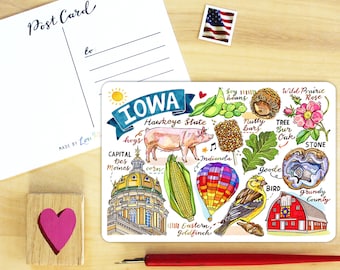 Post Card
to
MADE BY
IOWA
Hawkeye State
Soy
beans
Nutty
bars
Wild Prairie
Rose
TREE
Bur
Oak
STONE
Geode
hogs
CAPITAL
Des
Moines
corn
Indianola
BIRD
Eastern
Goldfinch
Grundy
County